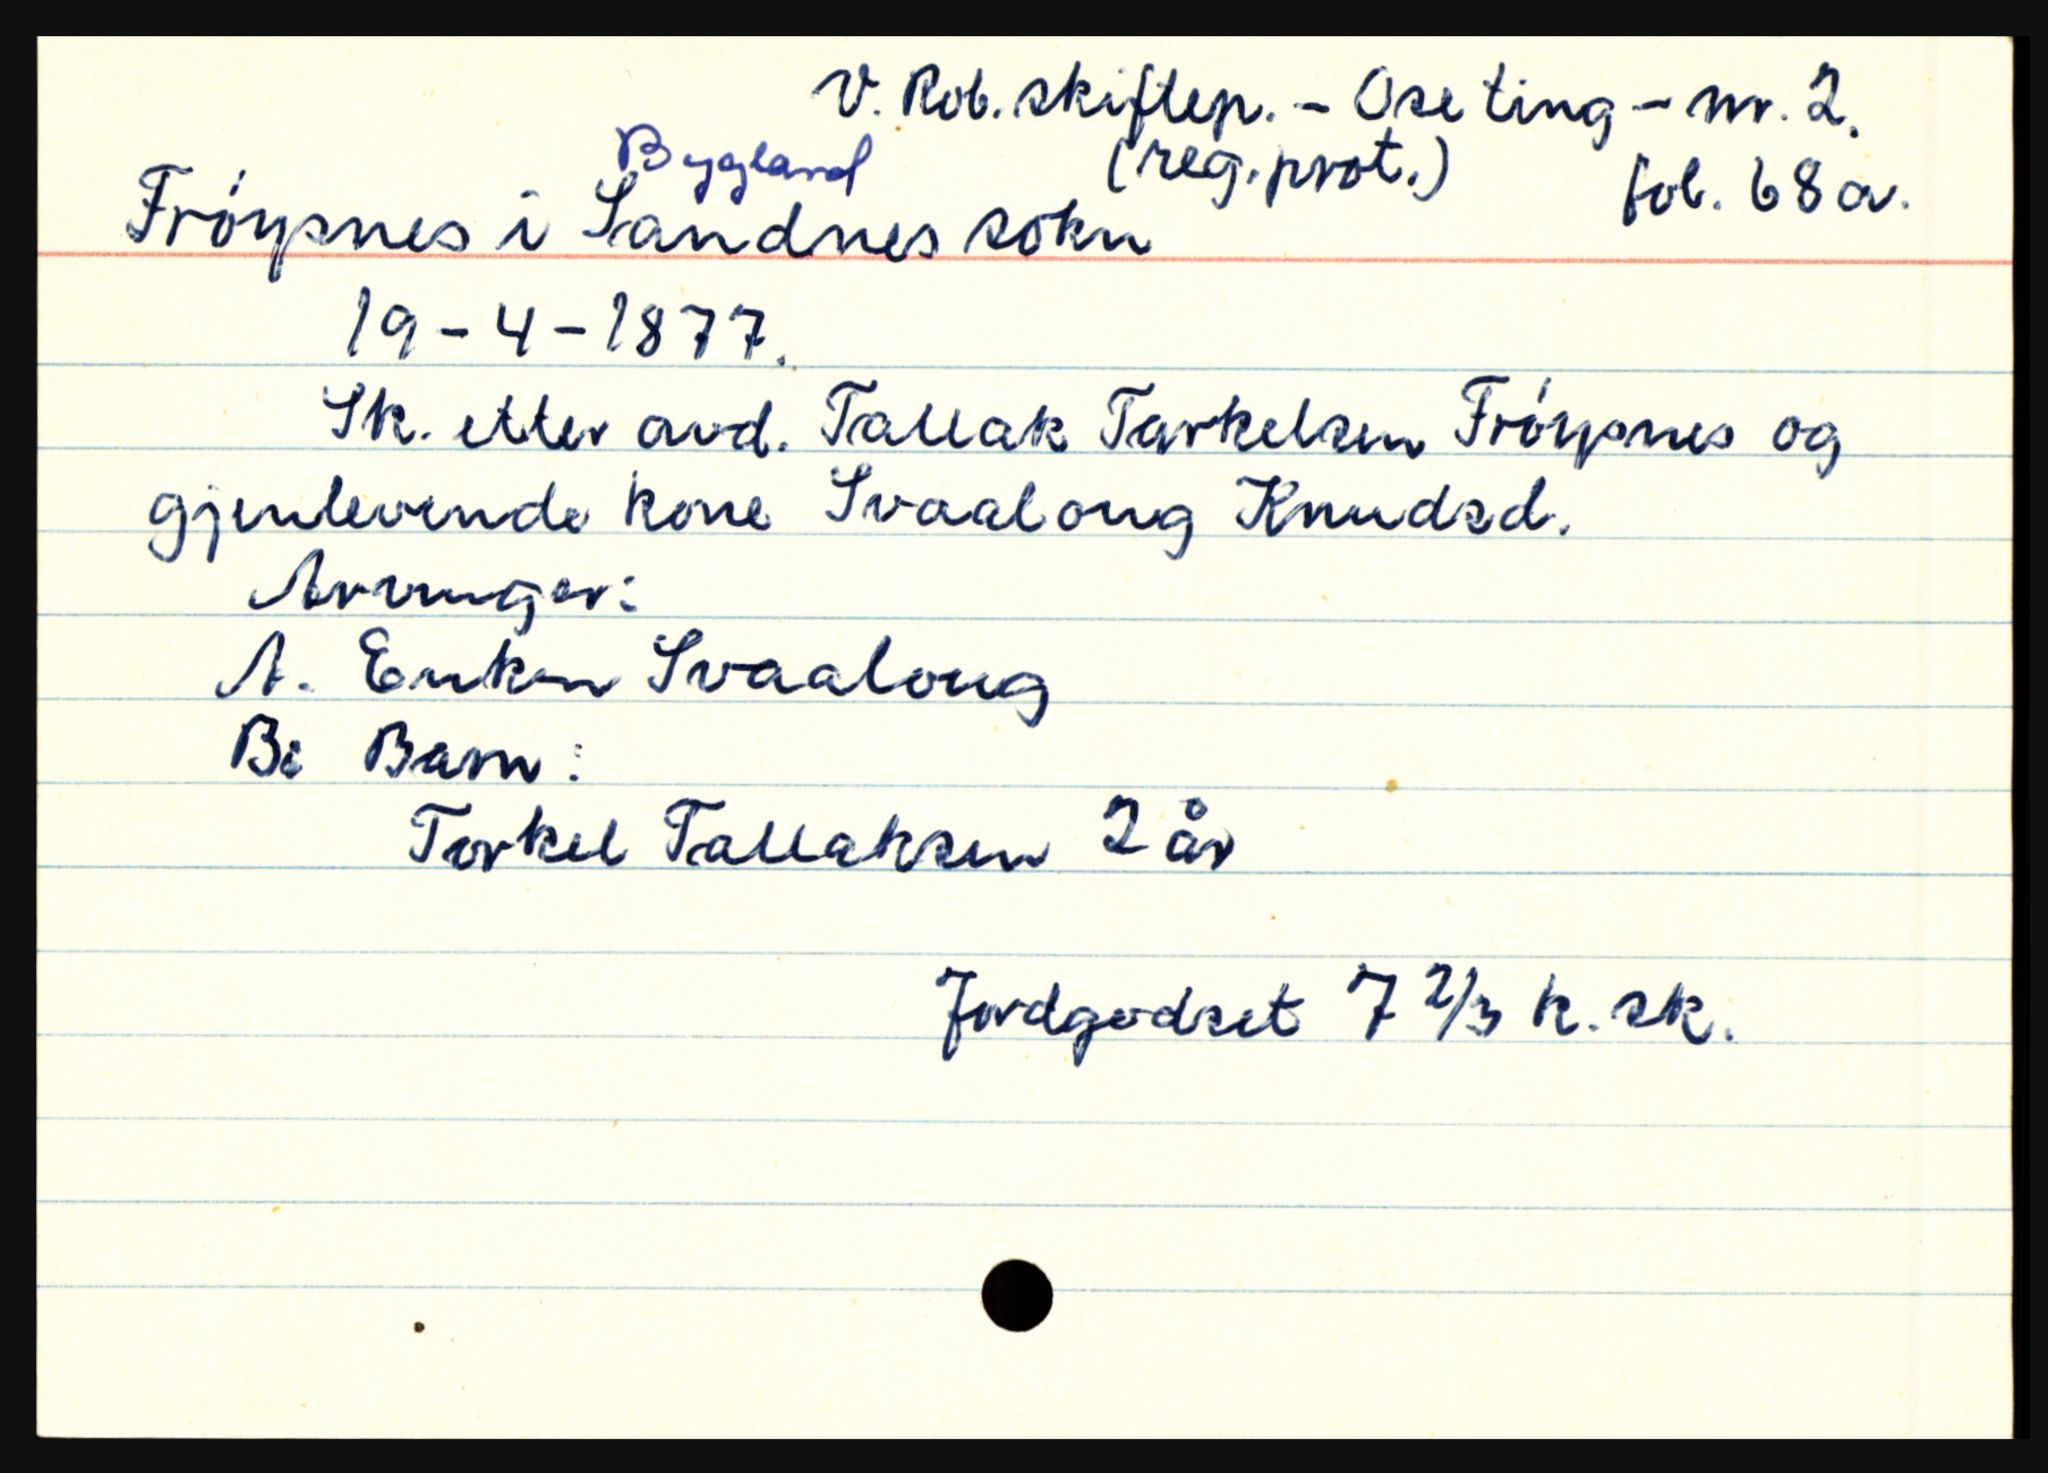 V. Rob. skiftep. - Ose ting - nr. 2.
Bygland (reg. prot.) fol. 68a.
Frøysnes i Sandnes sokn
19-4-1877.
Sk. etter avd. Tallak Tarkelsen Frøysnes og
gjenlevende kone Svaaloug Knudsd.
Arvinger:
A. Enken Svaaloug
B: Barn:
Torkel Tallaksen 2 år
Jordgodset 7 2/3 k. sk.